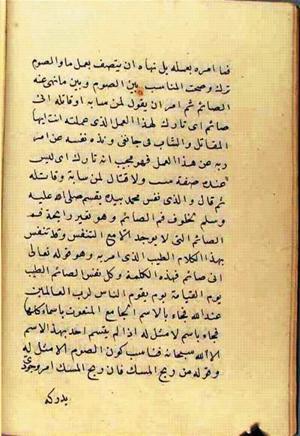 فما امره بعمله بل نهاه ان يتصف بعمل ما والصوم
ترك وصحت المناسبة بين الصوم وبين ما نهى عنه
الصائم ثم امر ان يقول لمن سابه او قاتله انى
صائم اى تارك لهذا العمل الذى عملته انت ايها
المقاتل والشاب فى جانبى ونزه نفسه عن امر
ربه عن هذا العمل فهو مخبر انه تارك اى ليس
عنده صفة سب ولا قتال لمن سابه وقاتله
ثم قال والذى نفس محمد بيده يقسم صلى الله عليه
وسلم لخلوف فم الصائم وهو تغير رايحة فم
الصائم التى لا يوجد الا مع التنفس وقد تنفس
بهذا الكلام الطيب الذى امر به وهو قوله تعالى
انى صائم فهذه الكلمة وكل نفس للصائم اطيب
يوم القيامة يوم يقوم الناس لرب العالمين
عند الله فجاء بالاسم الجامع المنعوت بالاسماء كلها
فجاء باسم لا مثل له اذ لم يتسم احد بهذا الاسم
الا الله سبحانه فناسب كون الصوم لا مثل له
وقوله من ريح المسك فان ريح المسك امر وجودى
يدركه